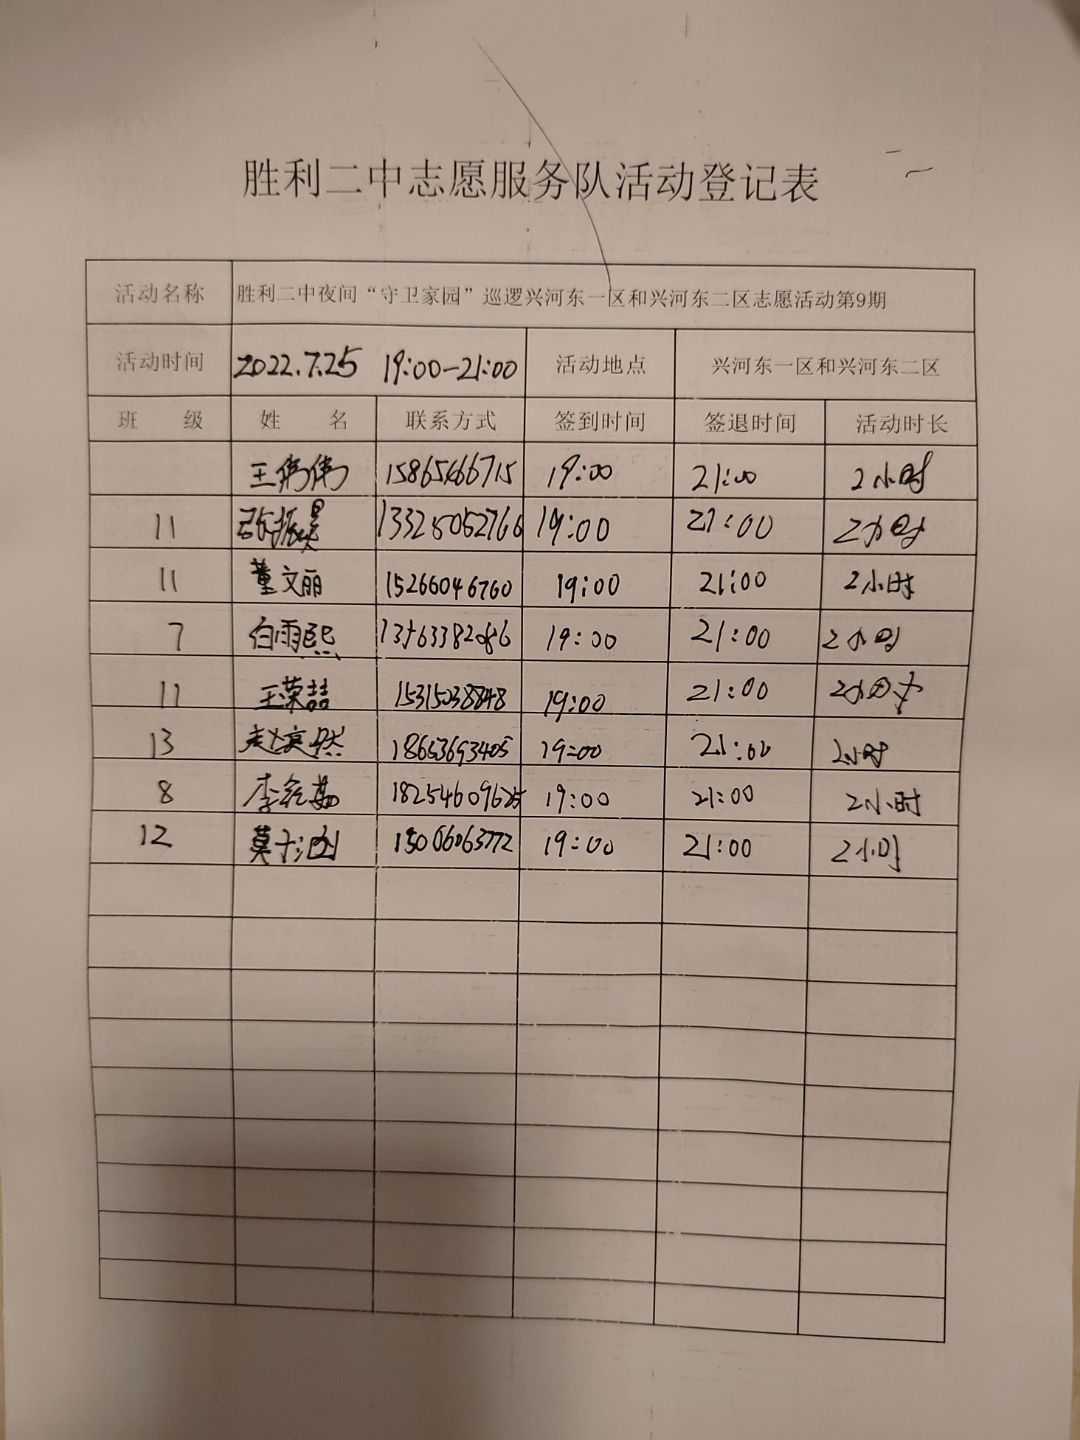 胜利二中志愿服务队活动登记表
活动名称 胜利二中夜间“守卫家园”巡逻兴河东一区和兴河东二区志愿活动第9期
活动时间 2022.7.25 19:00-21:00 活动地点 兴河东一区和兴河东二区
班 级 姓 名 联系方式 签到时间 签退时间 活动时长
王伟伟 15865266715 19:00 21:00 2小时
11 张振昊 13325052766 19:00 21:00 2小时
11 董文丽 15266046760 19:00 21:00 2小时
7 白雨熙 19:00 21:00 2小时
11 王荣喆 15315038848 19:00 21:00 2小时
13 18653693405 19:00 21:00 2小时
8 18254609625 19:00 21:00 2小时
12 15006063772 19:00 21:00 2小时